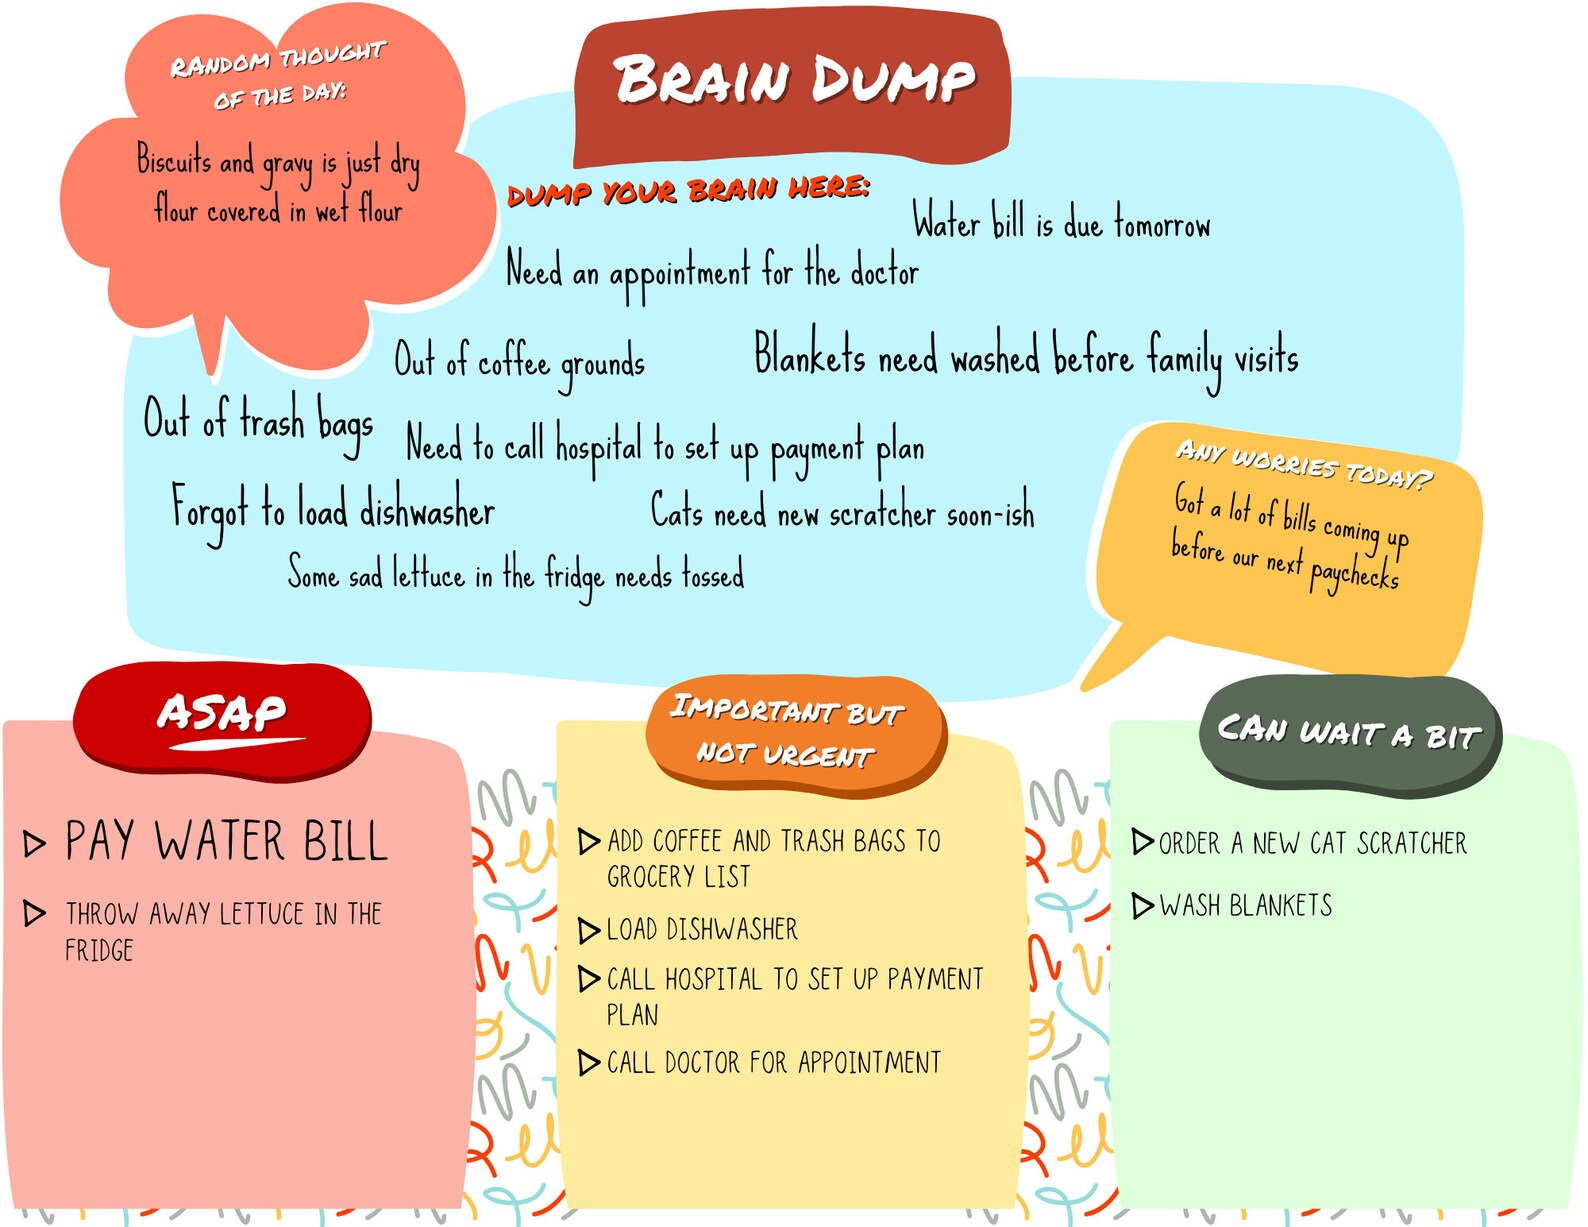 RANDOM THOUGHT
OF THE DAY:
Biscuits and gravy is just dry
flour covered in wet flour
BRAIN DUMP
DUMP YOUR BRAIN HERE:
Water bill is due tomorrow
Need an appointment for the doctor
Out of coffee grounds
Blankets need washed before family visits
Out of trash bags
Need to call hospital to set up payment plan
Forgot to load dishwasher
Cats need new scratcher soon-ish
Some sad lettuce in the fridge needs tossed
ANY WORRIES TODAY?
Got a lot of bills coming up
before our next paychecks
ASAP
PAY WATER BILL
THROW AWAY LETTUCE IN THE
FRIDGE
IMPORTANT BUT
NOT URGENT
ADD COFFEE AND TRASH BAGS TO
GROCERY LIST
LOAD DISHWASHER
CALL HOSPITAL TO SET UP PAYMENT
PLAN
CALL DOCTOR FOR APPOINTMENT
CAN WAIT A BIT
ORDER A NEW CAT SCRATCHER
WASH BLANKETS